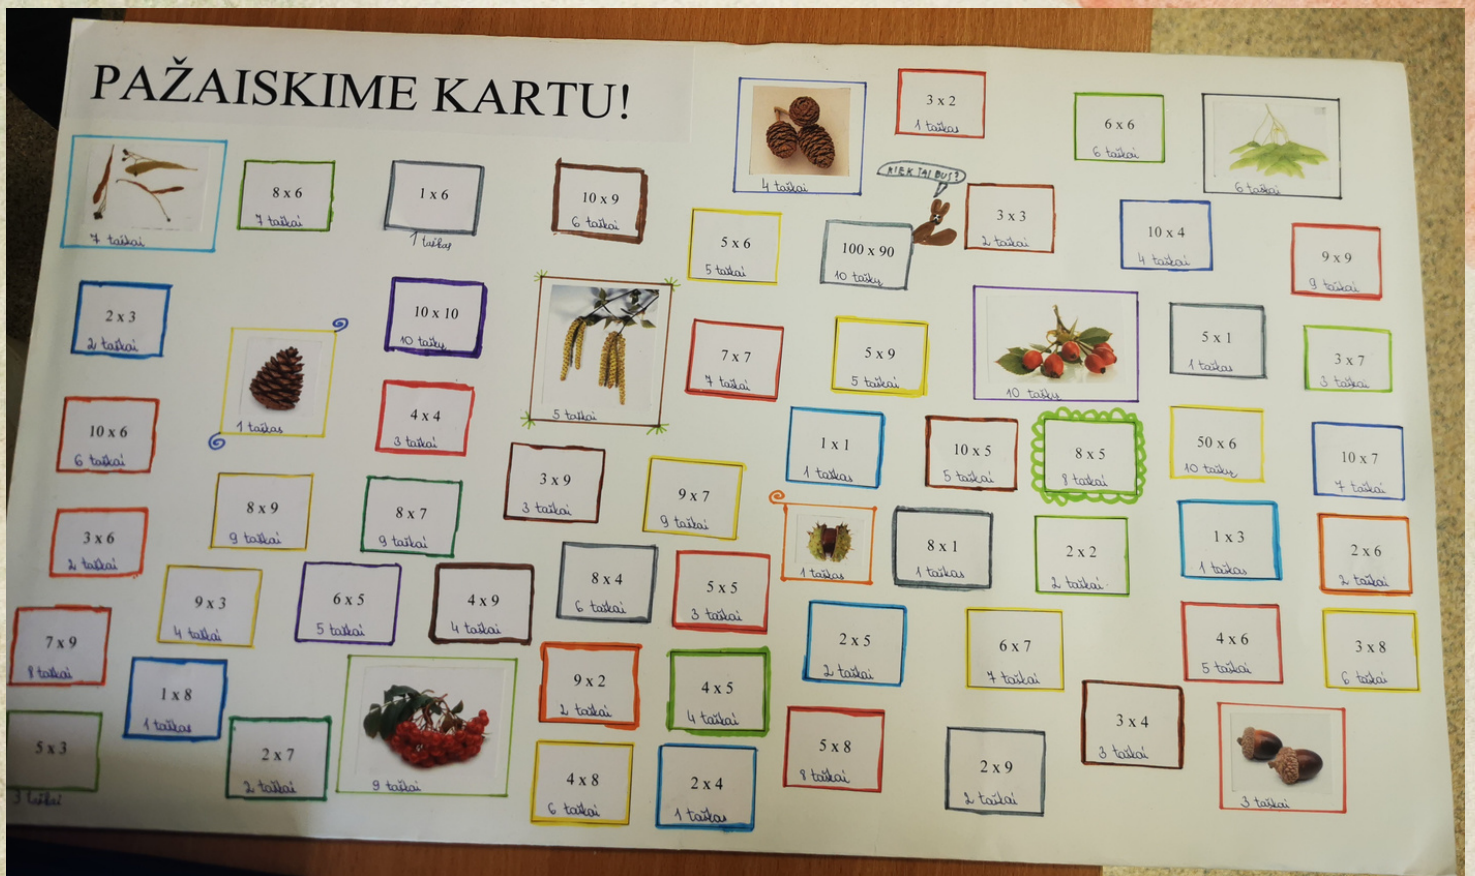 PAŽAISKIME KARTU!
4 taškai
3 x 2
1 taškas
6 x 6
6 taškai
6 taškai
7 taškai
8 x 6
7 taškai
1 x 6
1 taškas
10 x 9
6 taškai
KIEK TAI BUS?
5 x 6
5 taškai
100 x 90
10 taškų
3 x 3
2 taškai
10 x 4
4 taškai
9 x 9
9 taškai
2 x 3
2 taškai
1 taškas
10 x 10
10 taškų
5 taškai
7 x 7
7 taškai
5 x 9
5 taškai
10 taškų
5 x 1
1 taškas
3 x 7
3 taškai
10 x 6
6 taškai
4 x 4
3 taškai
1 x 1
1 taškas
10 x 5
5 taškai
8 x 5
8 taškai
50 x 6
10 taškų
10 x 7
7 taškai
3 x 6
2 taškai
8 x 9
9 taškai
8 x 7
9 taškai
3 x 9
3 taškai
9 x 7
9 taškai
1 taškas
8 x 1
1 taškas
2 x 2
2 taškai
1 x 3
1 taškas
2 x 6
2 taškai
9 x 3
4 taškai
6 x 5
5 taškai
4 x 9
4 taškai
8 x 4
6 taškai
5 x 5
3 taškai
7 x 9
8 taškai
1 x 8
1 taškas
9 x 2
2 taškai
4 x 5
4 taškai
2 x 5
2 taškai
6 x 7
7 taškai
4 x 6
5 taškai
3 x 8
6 taškai
5 x 3
3 taškai
2 x 7
2 taškai
9 taškai
4 x 8
6 taškai
2 x 4
1 taškas
5 x 8
8 taškai
2 x 9
2 taškai
3 x 4
3 taškai
3 taškai